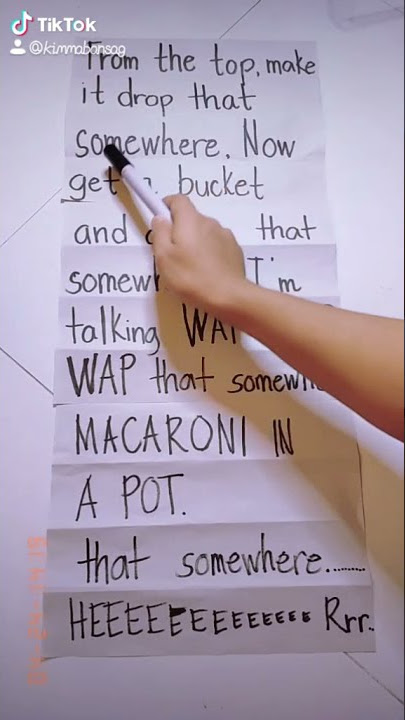 TikTok
@kimmabonsag
From the top, make
it drop that
somewhere. Now
get bucket
and that
somewh I'm
talking WAP
WAP that somewh
MACARONI IN
A POT.
that somewhere.........
HEEEEEEEEEEEEEE Rrr..